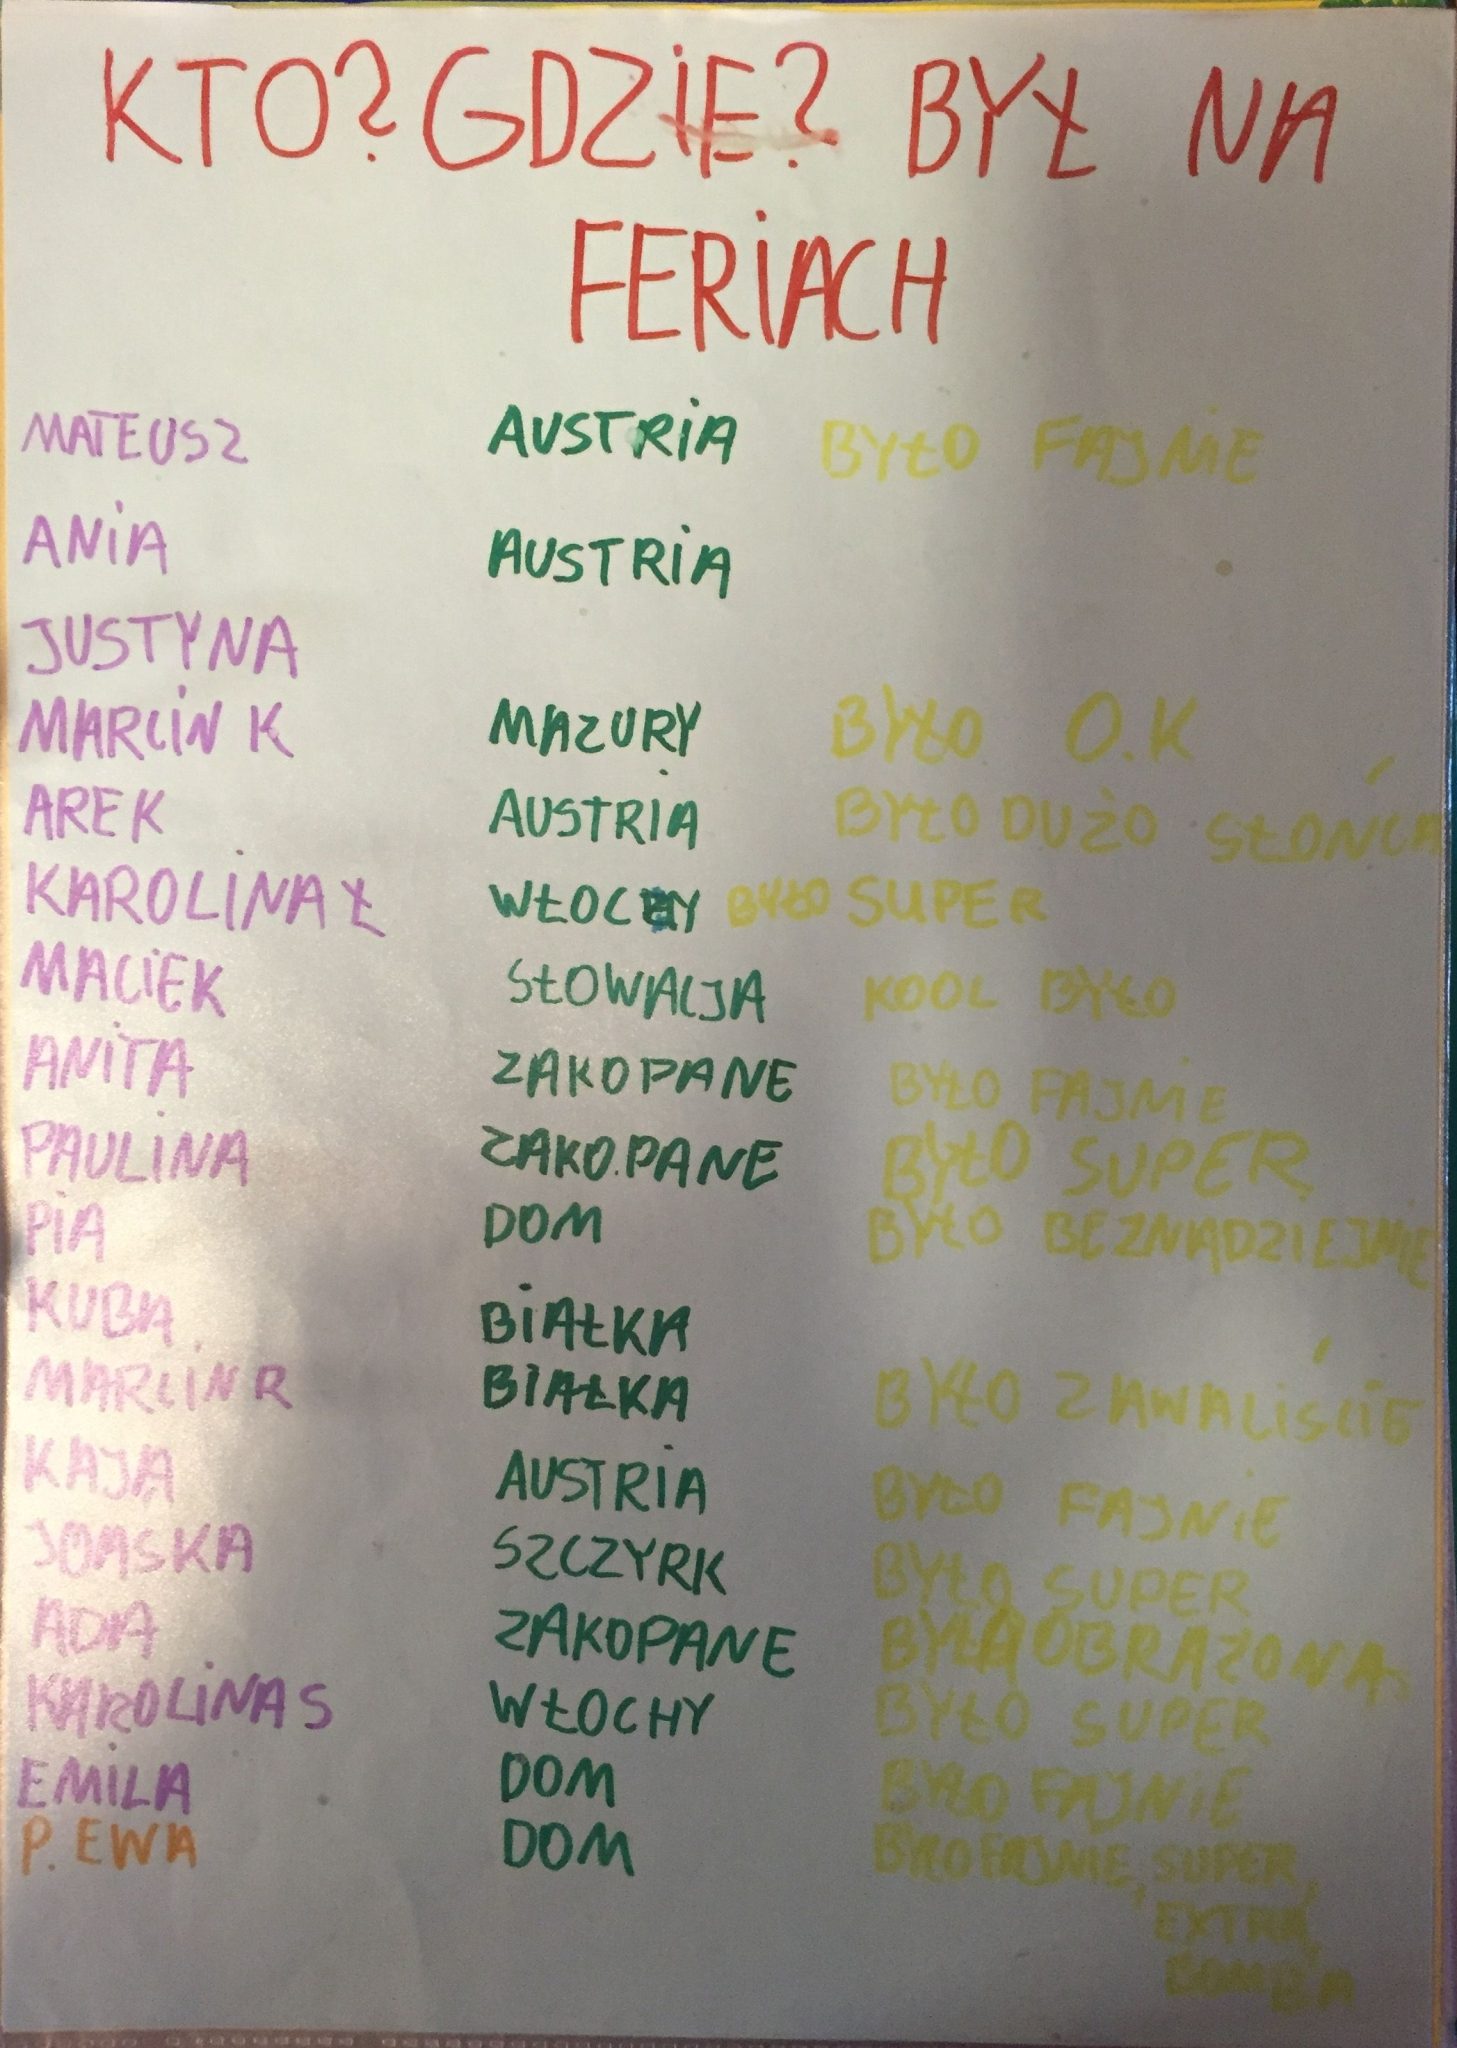 KTO? GDZIE? BYŁ NA
FERIACH
MATEUSZ AUSTRIA BYŁO FAJNIE
ANIA AUSTRIA
JUSTYNA
MARCIN K MAZURY BYŁO O.K
AREK AUSTRIA BYŁO DUŻO SŁOŃCA
KAROLINA Ł WŁOCHY BYŁO SUPER
MACIEK SŁOWACJA KOOL BYŁO
ANITA ZAKOPANE BYŁO FAJNIE
PAULINA ZAKO.PANE BYŁO SUPER
PIA DOM BYŁO BEZNADZIEJNIE
KUBA BIAŁKA
MARCIN R BIAŁKA BYŁO ZAWALIŚCIE
KAJA AUSTRIA BYŁO FAJNIE
JOASKA SZCZYRK BYŁO SUPER
ADA ZAKOPANE BYŁA OBRAZONA
KAROLINA S WŁOCHY BYŁO SUPER
EMILA DOM BYŁO FAJNIE
P. EWA DOM BYŁO FAJNIE, SUPER,
EXTRA,
BOMBA